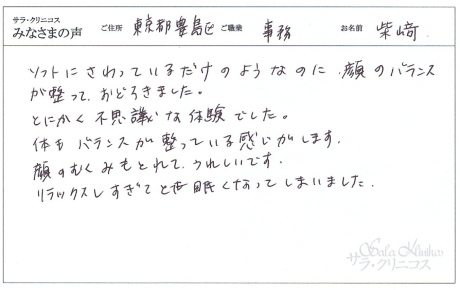 サラ・クリニコス
みなさまの声 ご住所 東京都豊島区 ご職業 事務 お名前 柴﨑
ソフトにさわっているだけのようなのに、顔のバランス
が整って、おどろきました。
とにかく不思議な体験でした。
体もバランスが整っている感じがします。
顔のむくみもとれて、うれしいです。
リラックスしすぎて眠くなってしまいました。
Sala Klinikos
サラ・クリニコス